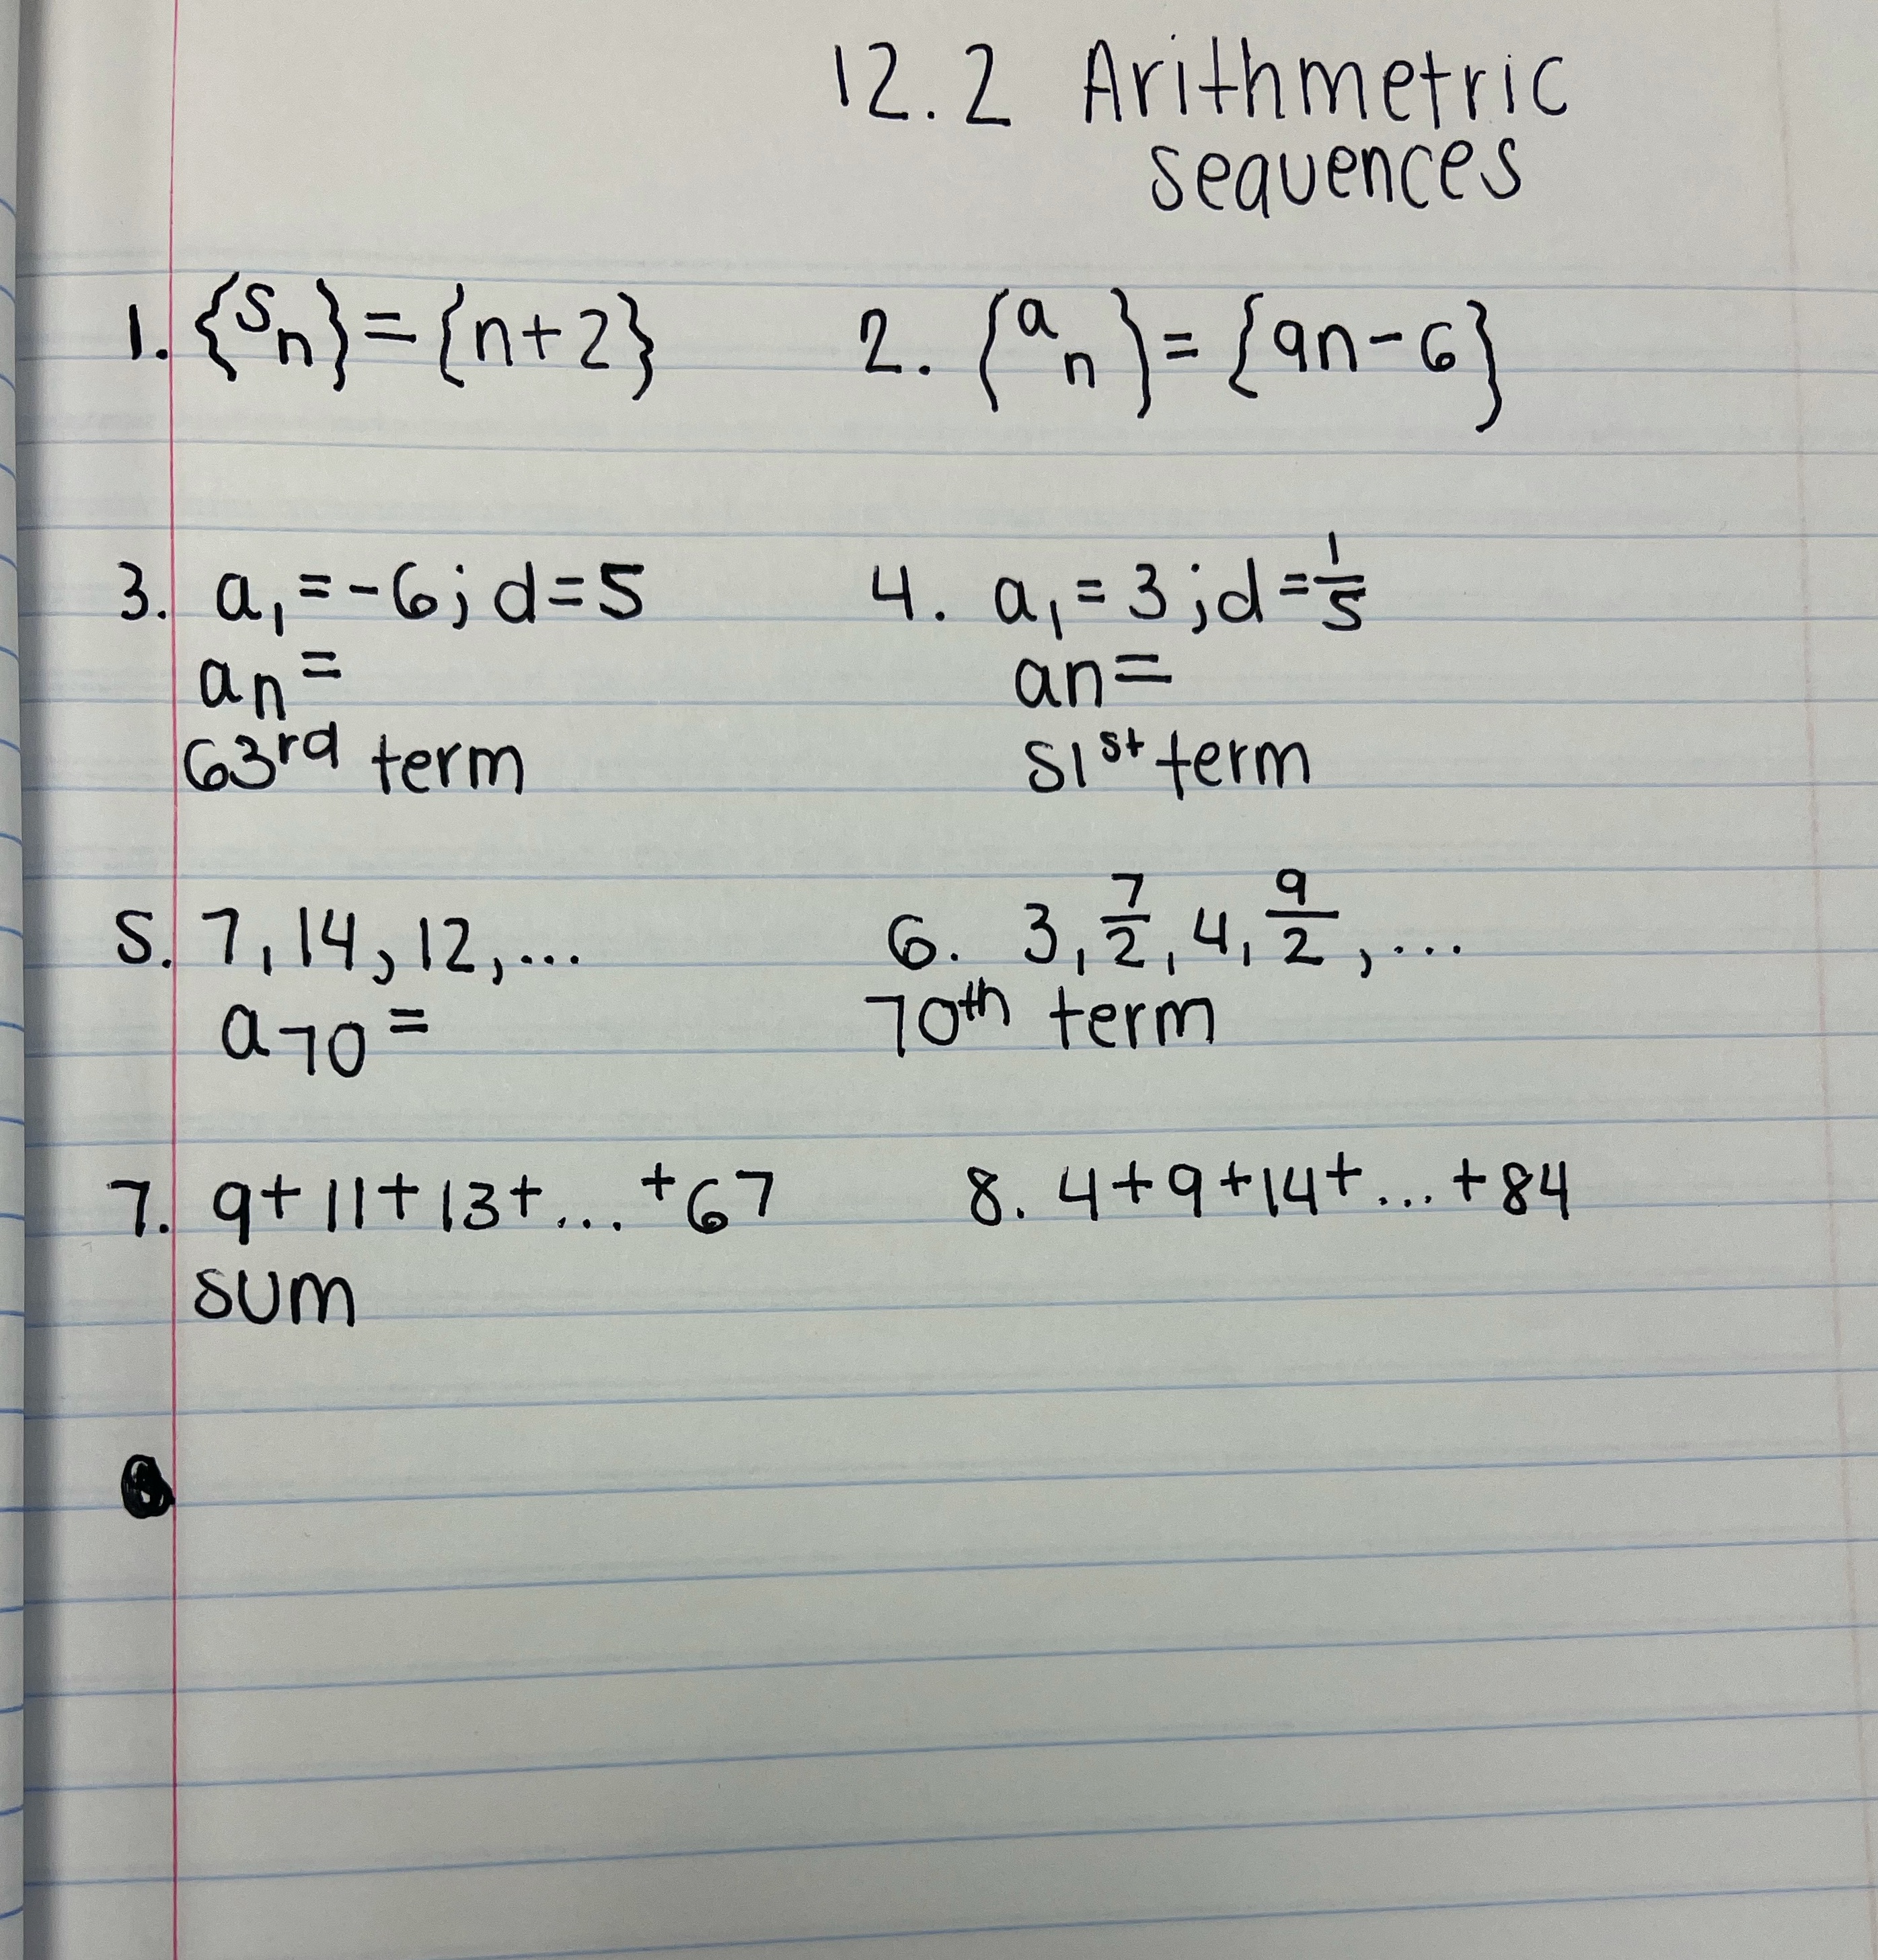 12.2 Arithmetric
sequences
1. {Sn} = {n+2}
2. {an} = {9n-6}
3. a1 = -6; d=5
an =
63rd term
4. a1 = 3; d = 1/5
an =
51st term
5. 7, 14, 12, ...
a70 =
6. 3, 7/2, 4, 9/2, ...
70th term
7. 9+11+13+... +67
sum
8. 4+9+14+...+84